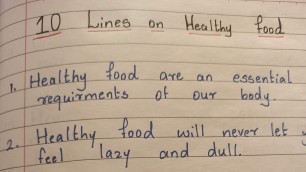 10 Lines on Healthy food
1. Healthy food are an essential
requirments of our body.
2. Healthy food will never let
feel lazy and dull.